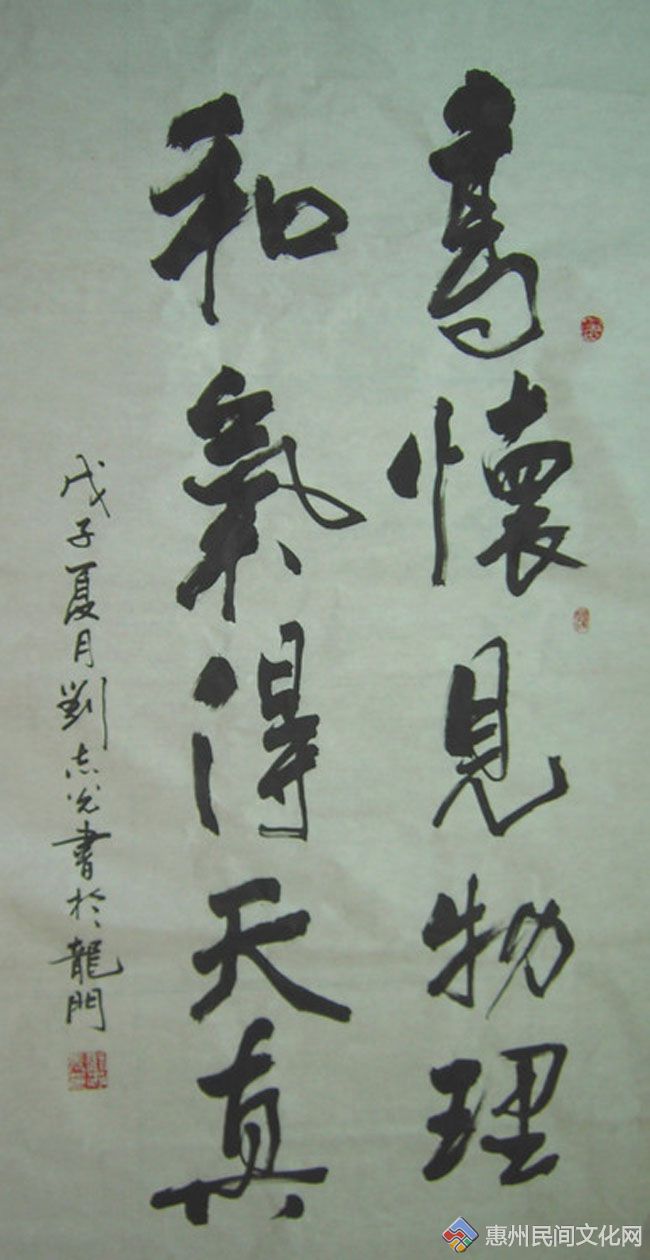 高懷見物理
和氣得天真
戊子夏月劉志光書於龍門
惠州民间文化网